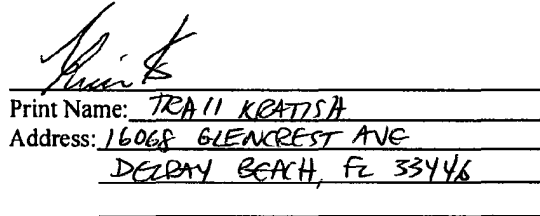 Print Name: TRACI KRATISH
Address: 16068 GLENCREST AVE
DELRAY BEACH, FL 33446